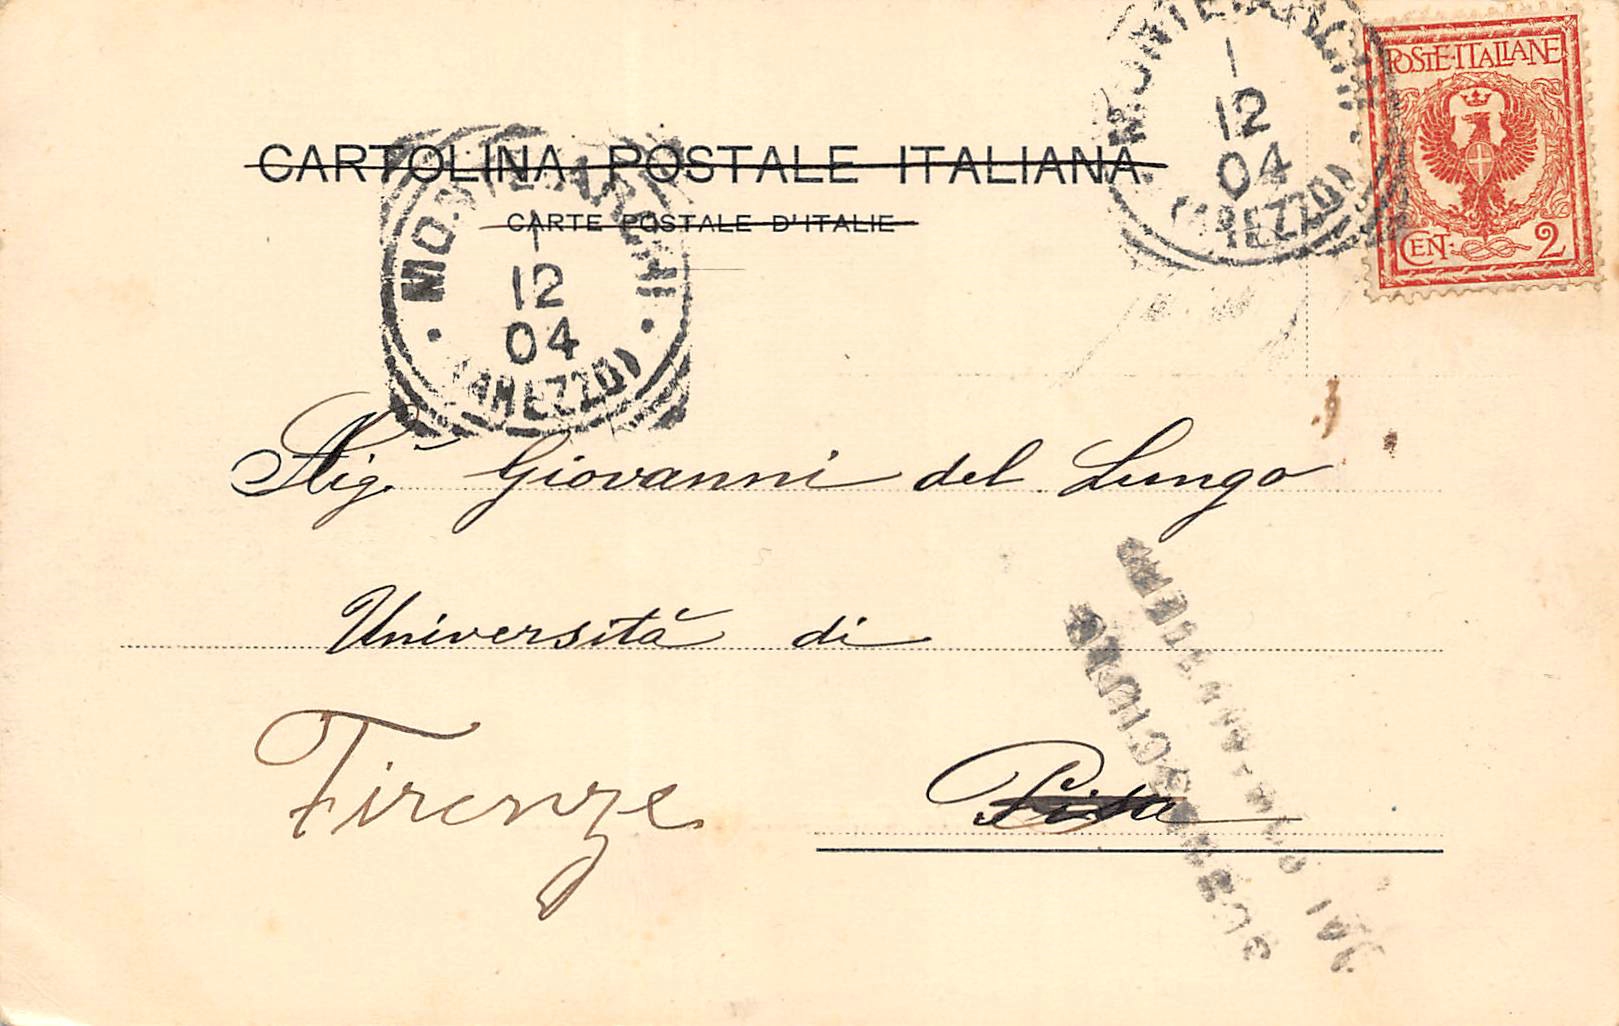 POSTE·ITALIANE
CEN: 2
MONTEVARCHI
1
12
04
(AREZZO)
CARTOLINA POSTALE ITALIANA
CARTE POSTALE D'ITALIE
MONTEVARCHI
1
12
04
(AREZZO)
Sig. Giovanni del Lungo
Università di
Firenze
Pisa